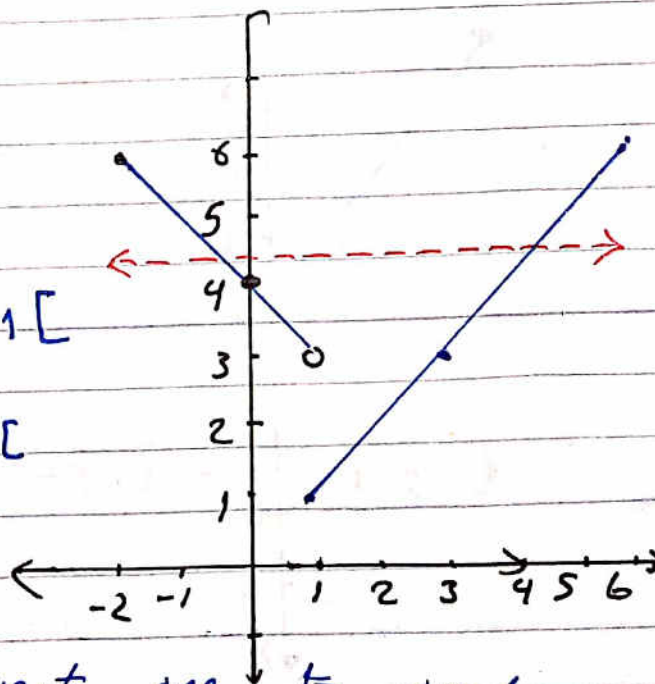 6
5
4
1 [
3
[
2
1
-2 -1 1 2 3 4 5 6